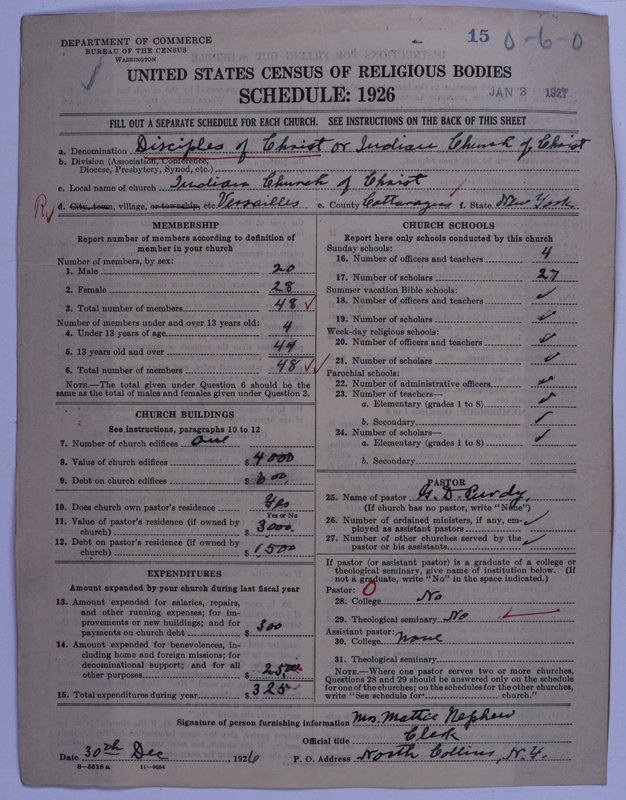 15 0-6-0
DEPARTMENT OF COMMERCE
BUREAU OF THE CENSUS
WASHINGTON
UNITED STATES CENSUS OF RELIGIOUS BODIES
SCHEDULE: 1926
JAN 3 1927
FILL OUT A SEPARATE SCHEDULE FOR EACH CHURCH. SEE INSTRUCTIONS ON THE BACK OF THIS SHEET
a. Denomination Disciples of Christ or Indian Church of Christ
b. Division (Association, Conference,
Diocese, Presbytery, Synod, etc.)
c. Local name of church Indian Church of Christ
d. City, town, village, or township, etc. Versailles e. County Cattaraugus f. State New York
MEMBERSHIP
Report number of members according to definition of
member in your church
Number of members, by sex:
1. Male 20
2. Female 28
3. Total number of members 48 ✓
Number of members under and over 13 years old:
4. Under 13 years of age 4
5. 13 years old and over 44
6. Total number of members 48 ✓✓
NOTE.—The total given under Question 6 should be the
same as the total of males and females given under Question 3.
CHURCH BUILDINGS
See instructions, paragraphs 10 to 12
7. Number of church edifices one
8. Value of church edifices $ 4000
9. Debt on church edifices $ 600
10. Does church own pastor's residence Yes
Yes or No
11. Value of pastor's residence (if owned by
church) $ 3000
12. Debt on pastor's residence (if owned by
church) $ 1500
EXPENDITURES
Amount expended by your church during last fiscal year
13. Amount expended for salaries, repairs,
and other running expenses; for im-
provements or new buildings; and for
payments on church debt $ 300
14. Amount expended for benevolences, in-
cluding home and foreign missions; for
denominational support; and for all
other purposes $ 25.00
15. Total expenditures during year $ 325
CHURCH SCHOOLS
Report here only schools conducted by this church
Sunday schools:
16. Number of officers and teachers 4
17. Number of scholars 27
Summer vacation Bible schools:
18. Number of officers and teachers ✓
19. Number of scholars ✓
Week-day religious schools:
20. Number of officers and teachers ✓
21. Number of scholars ✓
Parochial schools:
22. Number of administrative officers ✓
23. Number of teachers—
a. Elementary (grades 1 to 8) ✓
b. Secondary ✓
24. Number of scholars—
a. Elementary (grades 1 to 8) ✓
b. Secondary
PASTOR
25. Name of pastor G. D. Purdy,
(If church has no pastor, write "None")
26. Number of ordained ministers, if any, em-
ployed as assistant pastors ✓
27. Number of other churches served by the
pastor or his assistants ✓
If pastor (or assistant pastor) is a graduate of a college or
theological seminary, give name of institution below. (If
not a graduate, write "No" in the space indicated.)
Pastor: 0
28. College No
29. Theological seminary No
Assistant pastor:
30. College none
31. Theological seminary
NOTE.—Where one pastor serves two or more churches,
Questions 28 and 29 should be answered only on the schedule
for one of the churches; on the schedules for the other churches,
write "See schedule for church."
Signature of person furnishing information Mrs. Mattie Nephew
Official title Clerk
Date 30th Dec, 1926 P. O. Address North Collins, N.Y.
8—5318 a 11—9054